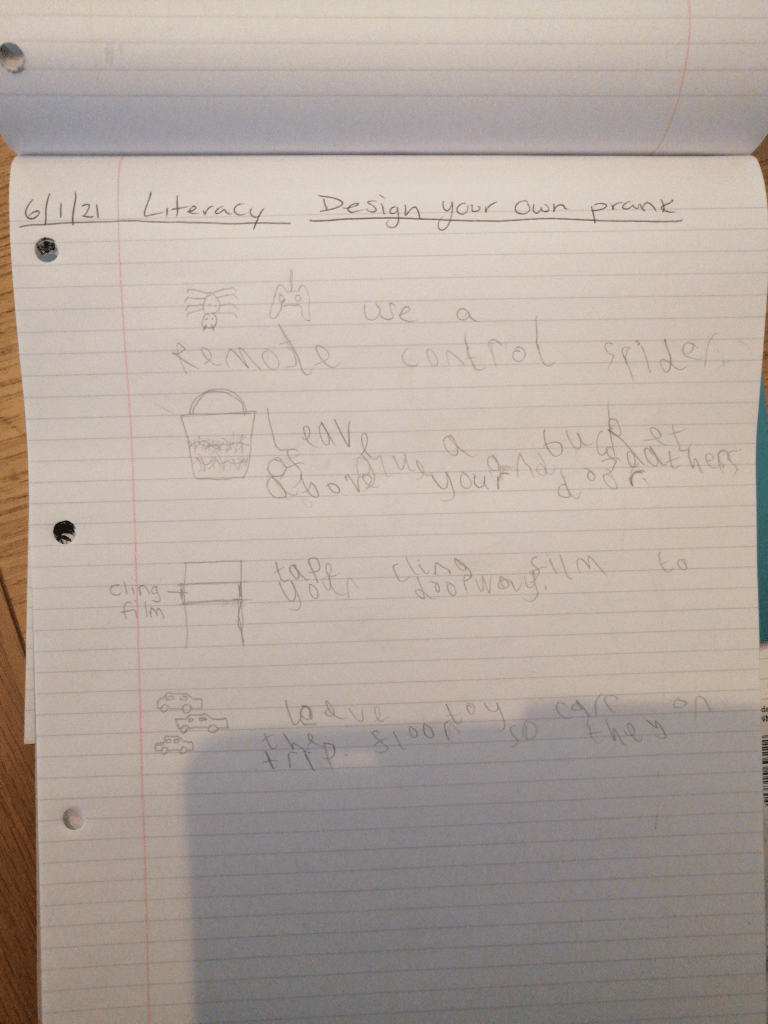 6/1/21 Literacy Design your own prank
use a
Remote control spider.
Leave a bucket
of glue and feathers
above your door.
tape cling film to
your doorway.
cling
film
leave toy cars on
the floor so they
trip.